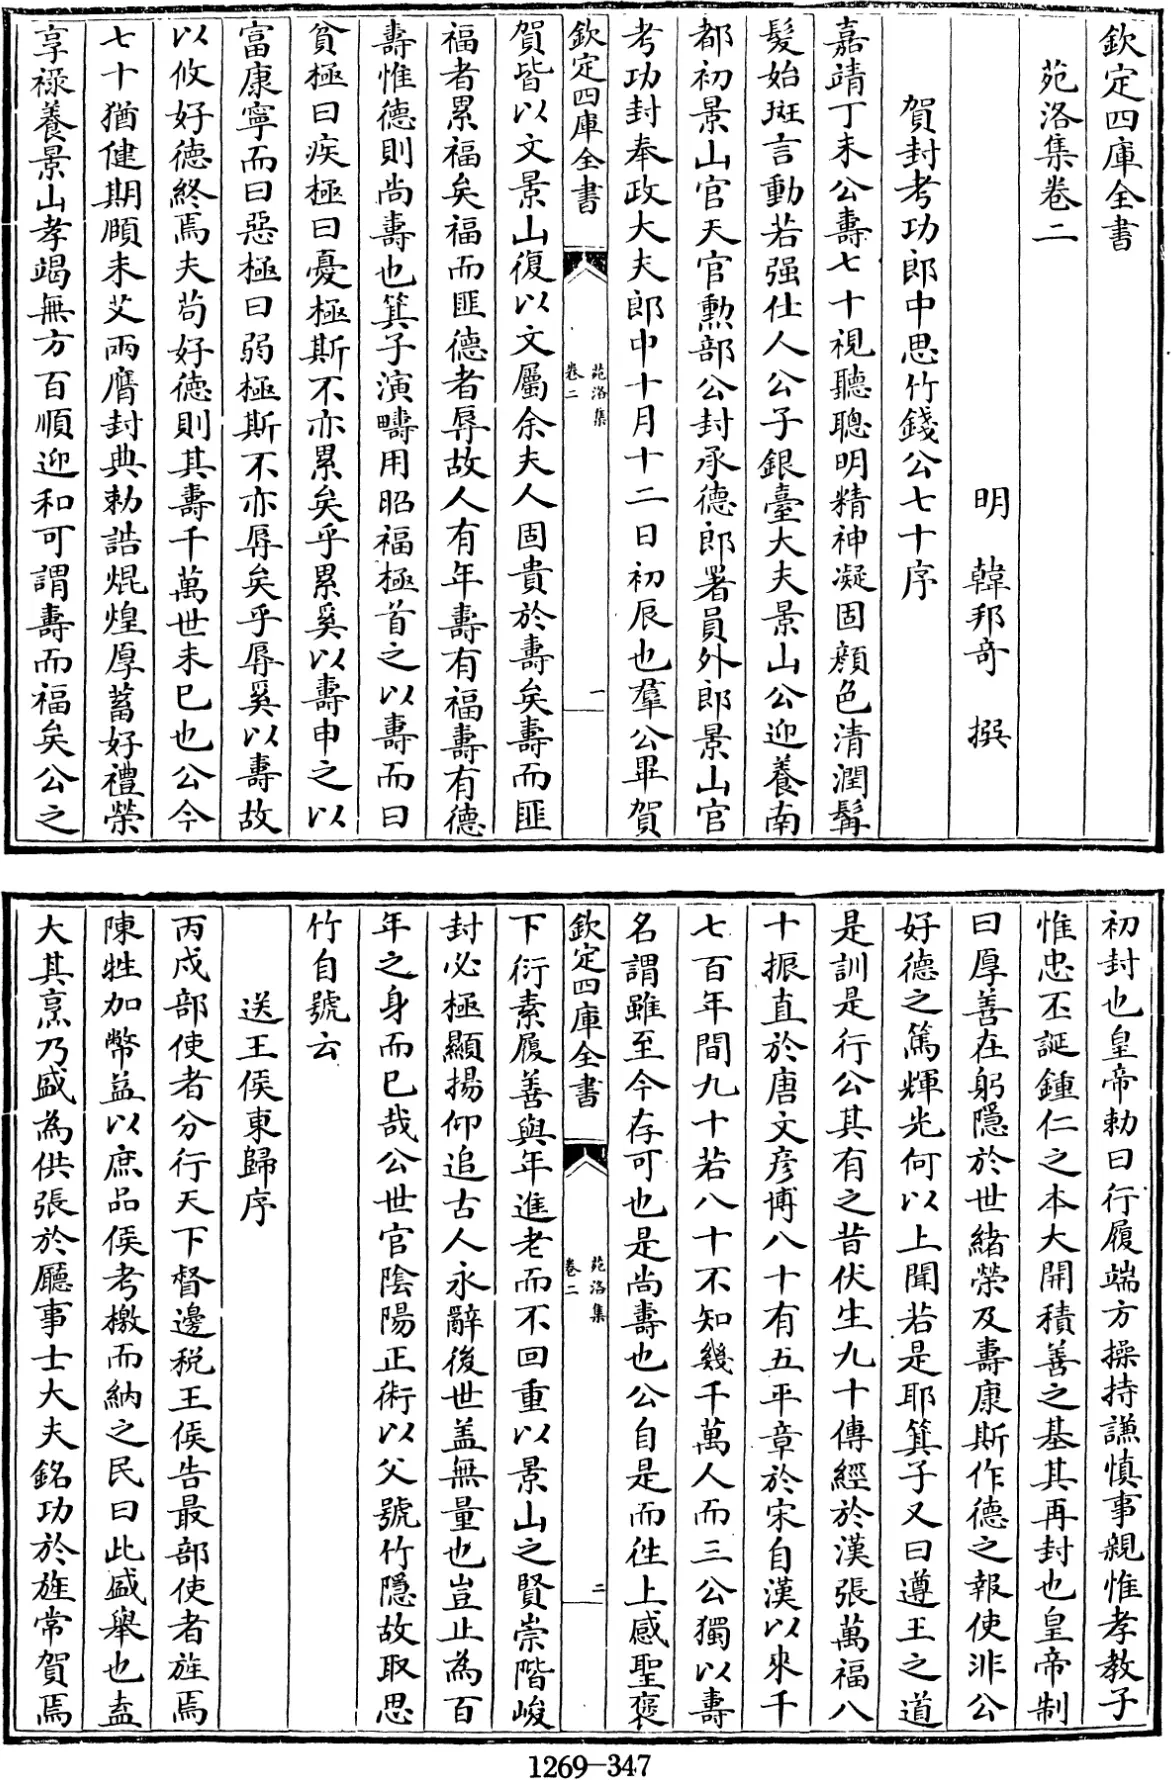 欽定四庫全書
苑洛集卷二
明 韓邦奇 撰
賀封考功郎中思竹錢公七十序
嘉靖丁未公壽七十視聽聰明精神凝固顔色清潤髯
髮始斑言動若强仕人公子銀臺大夫景山公迎養南
都初景山官天官勲部公封承德郎署員外郎景山官
考功封奉政大夫郎中十月十二日初辰也羣公畢賀
欽定四庫全書
苑洛集
卷二
一
賀皆以文景山復以文屬余夫人固貴於壽矣壽而匪
福者累福矣福而匪德者辱故人有年壽有福壽有德
壽惟德則尚壽也箕子演疇用昭福極首之以壽而曰
貧極曰疾極曰憂極斯不亦累矣乎累奚以壽申之以
富康寧而曰惡極曰弱極斯不亦辱矣乎辱奚以壽故
以攸好德終焉夫苟好德則其壽千萬世未已也公今
七十猶健期頤未艾兩膺封典勅誥焜煌厚蓄好禮榮
享祿養景山孝竭無方百順迎和可謂壽而福矣公之
初封也皇帝勅曰行履端方操持謙慎事親惟孝教子
惟忠丕誕鍾仁之本大開積善之基其再封也皇帝制
曰厚善在躬隱於世緒榮及壽康斯作德之報使非公
好德之篤輝光何以上聞若是耶箕子又曰遵王之道
是訓是行公其有之昔伏生九十傳經於漢張萬福八
十振直於唐文彦博八十有五平章於宋自漢以來千
七百年間九十若八十不知幾千萬人而三公獨以壽
名謂雖至今存可也是尚壽也公自是而徃上感聖褒
欽定四庫全書
苑洛集
卷二
二
下衍素履善與年進老而不回重以景山之賢崇階峻
封必極顯揚仰追古人永辭後世盖無量也豈止為百
年之身而已哉公世官陰陽正術以父號竹隱故取思
竹自號云
送王侯東歸序
丙戌部使者分行天下督邊税王侯告最部使者旌焉
陳牲加幣益以庶品侯考檄而納之民曰此盛舉也盍
大其烹乃盛為供張於廳事士大夫銘功於旌常賀焉
1269—347